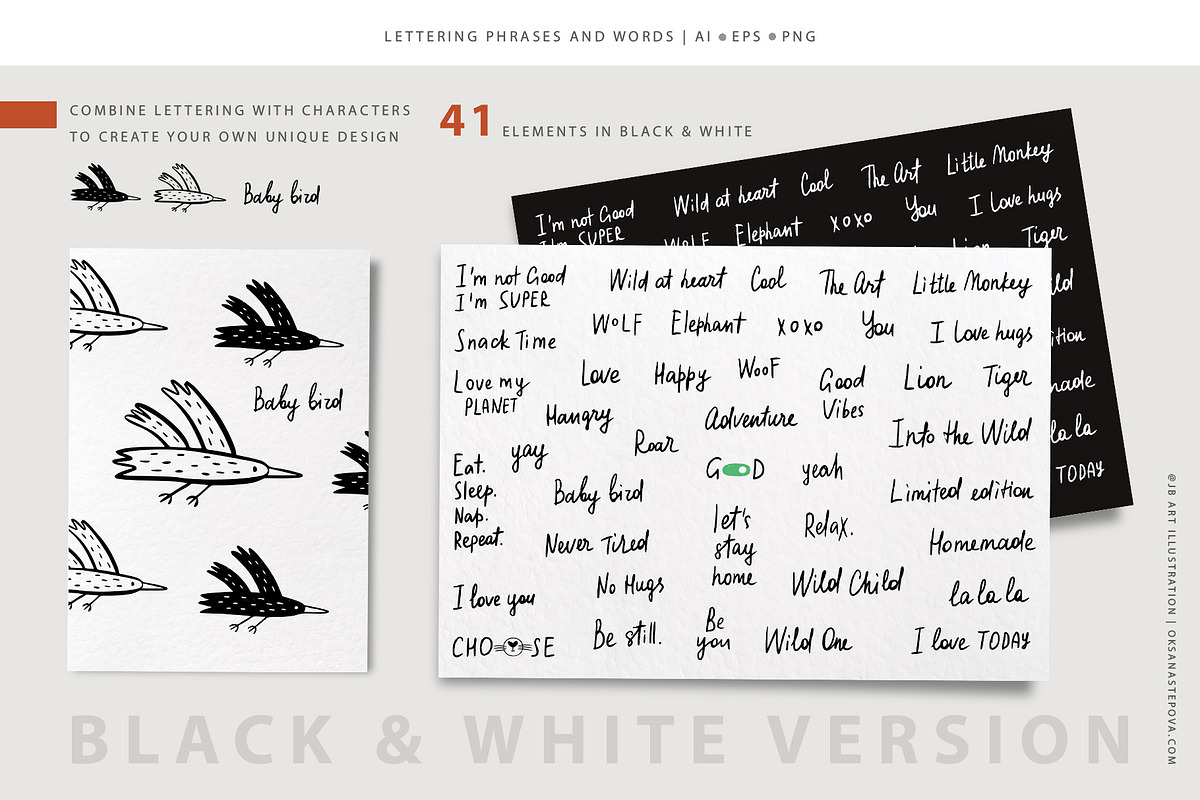 LETTERING PHRASES AND WORDS | AI ● EPS ● PNG
COMBINE LETTERING WITH CHARACTERS
TO CREATE YOUR OWN UNIQUE DESIGN
41 ELEMENTS IN BLACK & WHITE
Baby bird
Baby bird
I'm not Good
I'm SUPER
Wild at heart
Cool
The Art
Little Monkey
WoLF
Elephant
xoxo
You
I love hugs
Tiger
I'm not Good
I'm SUPER
Wild at heart
Cool
The Art
Little Monkey
Snack Time
WoLF
Elephant
xoxo
You
I love hugs
Love my
PLANET
Love
Happy
WooF
Good
Vibes
Lion
Tiger
Hangry
Adventure
Into the Wild
Eat.
Sleep.
Nap.
Repeat.
yay
Roar
GOOD
yeah
Baby bird
Limited edition
let's
stay
home
Relax.
Never Tired
Homemade
I love you
No Hugs
Wild Child
la la la
CHOOSE
Be still.
Be
you
Wild One
I love TODAY
la la
TODAY
BLACK & WHITE VERSION
@JB ART ILLUSTRATION | OKSANASTEPOVA.COM